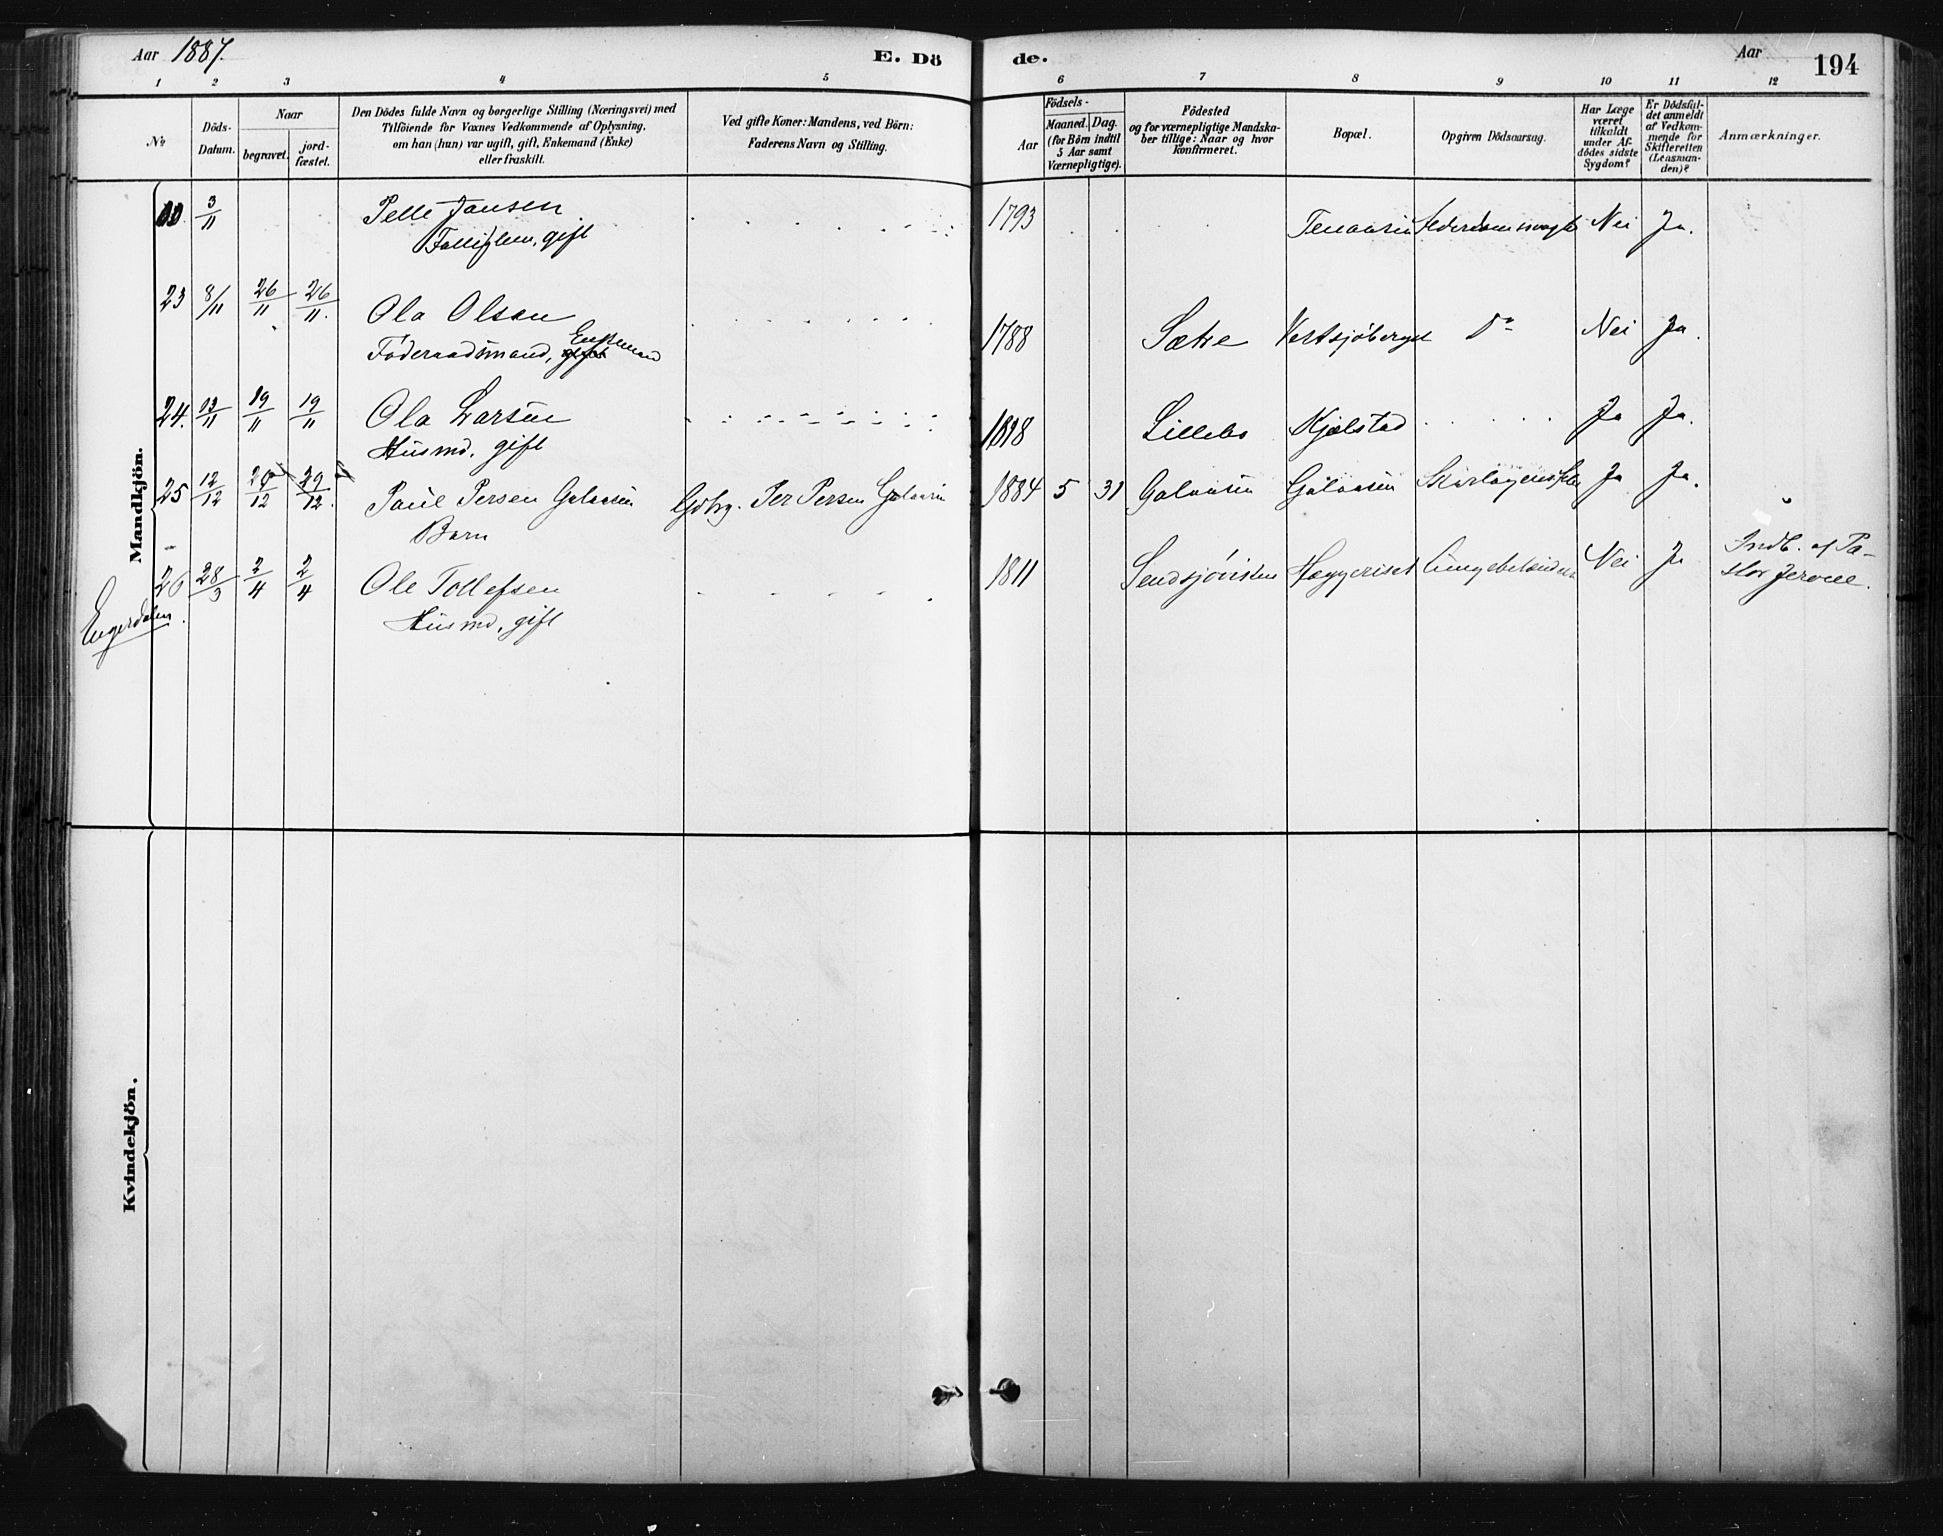 Aar 1887. E. Dö de. Aar 194
1 2 3 4 5 6 7 8 9 10 11 12
No
Döds-Datum.
Naar
begravet.
jord-fæstet.
Den Dödes fulde Navn og borgerlige Stilling (Næringsvei) med
Tilföiende for Voxnes Vedkommende af Oplysning,
om han (hun) var ugift, gift, Enkemand (Enke)
eller fraskilt.
Ved gifte Koner: Mandens, ved Börn:
Faderens Navn og Stilling.
Födsels-
Aar
Maaned. Dag.
(for Børn indtil
5 Aar samt
Værnepligtige).
Födested
og for værnepligtige Mandska-
ber tillige: Naar og hvor
konfirmeret.
Bopæl.
Opgiven Dödsaarsag.
Har Læge
været
tilkaldt
under Af-
dødes sidste
Sygdom?
Er Dödsfal-
det anmeldt
af Vedkom-
mende for
Skifteretten
(Lensman-
den)?
Anmærkninger.
Mandkjön.
3/11 Pelle Jansen 1793 Nei Ja.
gift
23 8/11 26/11 26/11. Ola Olsen 1788 Sætre Vestsjøberget Do Nei Ja.
Føderaadsmand, gift Enkemand
24. 13/11 19/11 19/11 Ola Larsen Lillebo Kjølstad Ja Ja.
Husmd, gift
25 12/12 29/12 29/12. Paul Persen Galaasen Gdbr. Per Persen Galaasen 1884 5 31 Galaasen Galaasen Ja Ja.
Barn
26 28/3 2/4 2/4 Ole Tollefsen 1811 Hæggeriset Lungebetændelse Nei Ja Indb. af Pa-
stor
Husmd, gift
Engerdalen.
Kvindekjön.